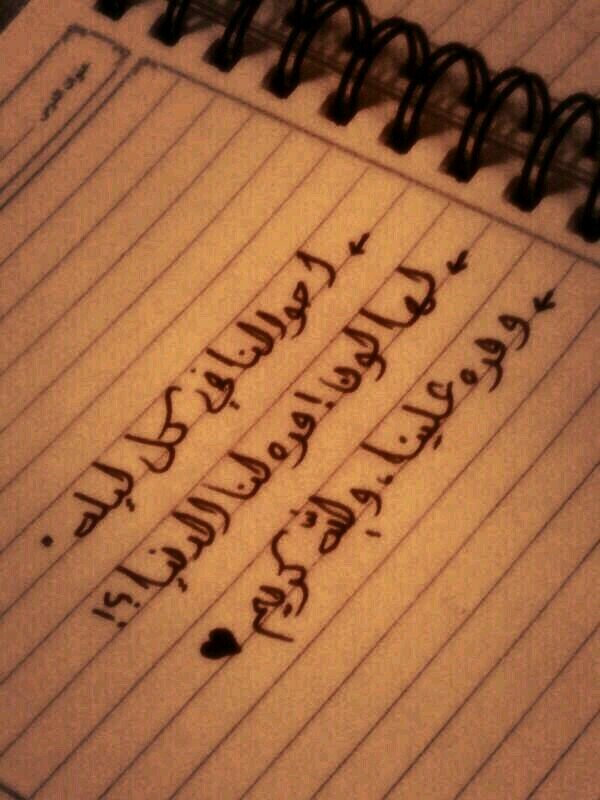 احوالنا في كل ليله .
لها لون ! مره لنا الدنيا ؟!
ومره علينا ، والله كريم ♥